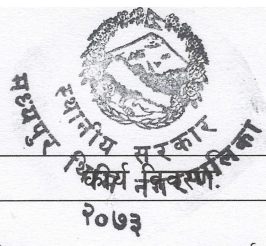 स्थानीय सरकार
मध्यपुर थिमि नगरपालिका
२०७३